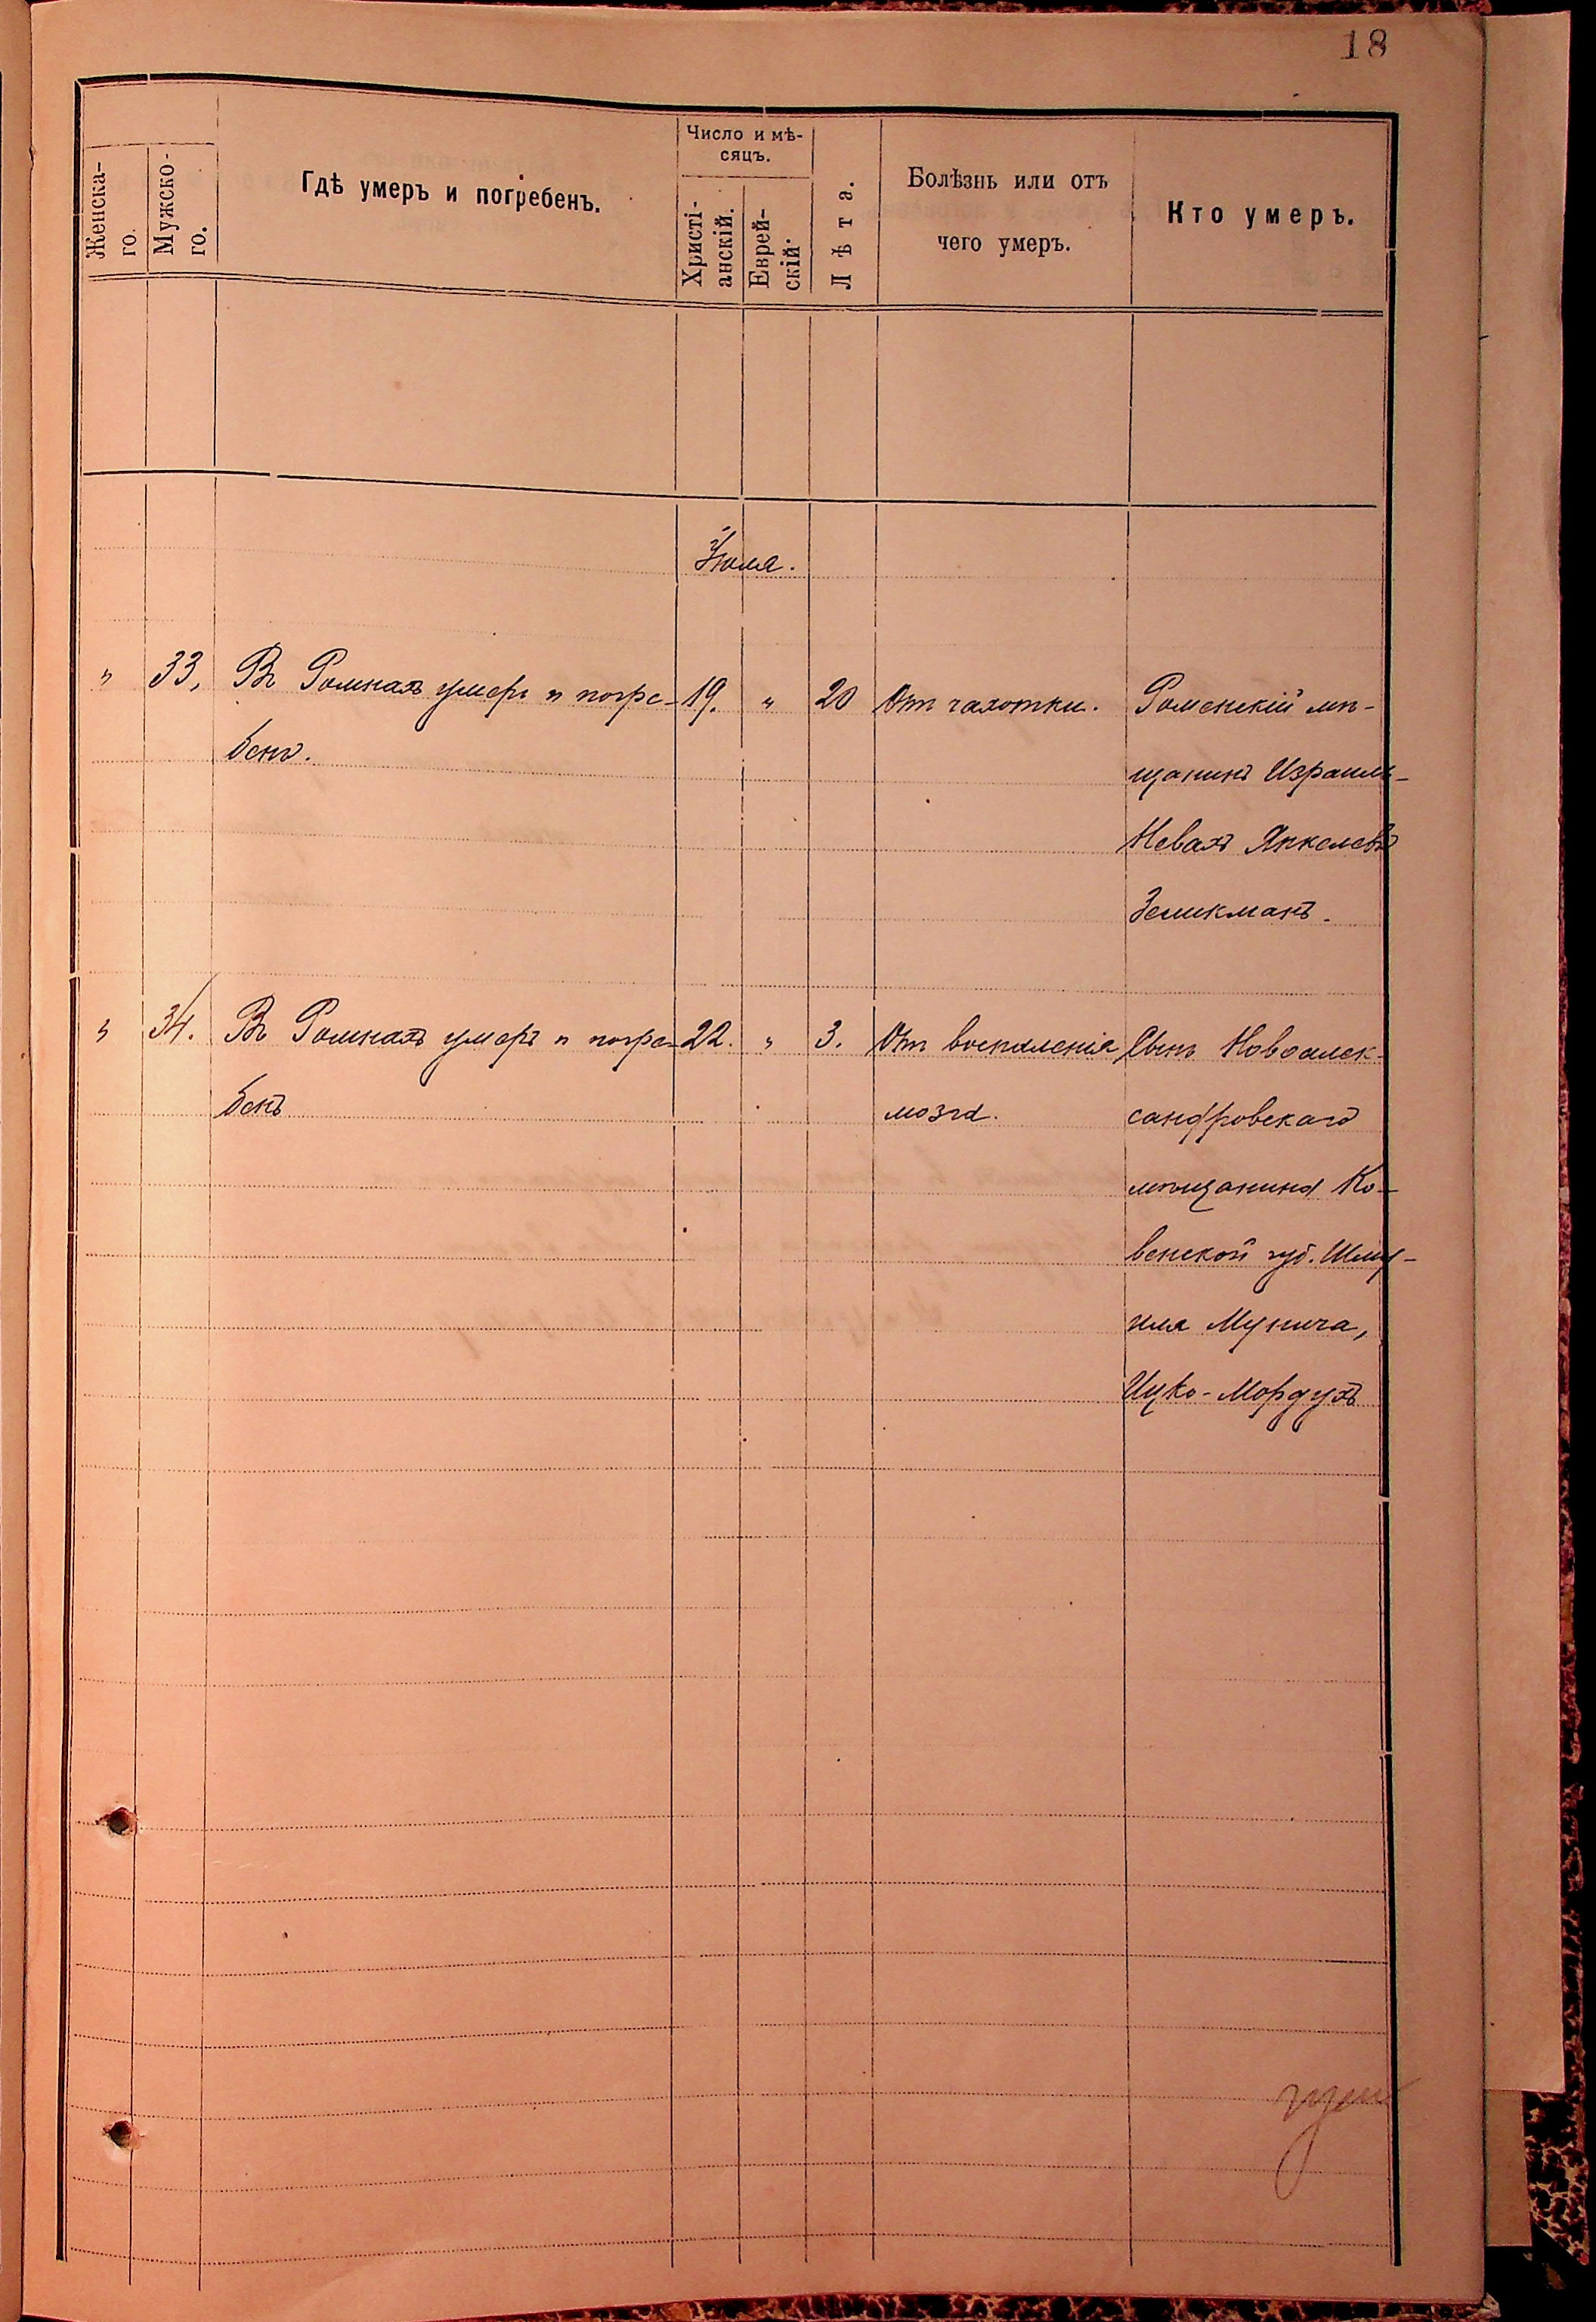 18
Женска-
го.
Мужско-
го.
Гдѣ умеръ и погребенъ.
Число и мѣ-
сяцъ.
Христі-
анскій.
Еврей-
скій.
Лѣта.
Болѣзнь или отъ
чего умеръ.
Кто умеръ.
Іюля.
" 33. Въ Ромнахъ умеръ и погре- 19. " 20 Отъ чахотки. Роменскій мѣ-
бенъ.
щанинъ Израиль-
Невахъ Янкелевъ
Зеликманъ.
" 34. Въ Ромнахъ умеръ и погре- 22. " 3. Отъ воспаленія Сынъ Новоалек-
бенъ мозга. сандровскаго
мѣщанина Ко-
венской губ. Шму-
иля Мунича,
Ицко-Мордухъ